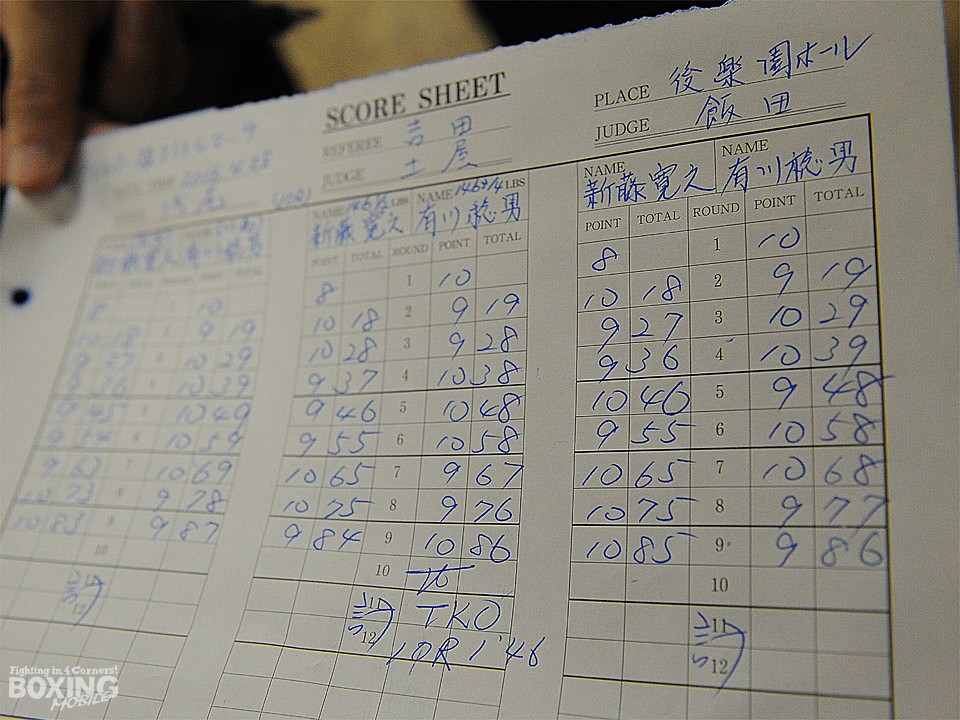 SCORE SHEET
PLACE 後楽園ホール
REFEREE 吉田
JUDGE 飯田
JUDGE 土屋
LBS 146 3/4 LBS
NAME NAME
新藤寛之 有川稔男
POINT TOTAL ROUND POINT TOTAL
8 1 10
10 18 2 9 19
10 28 3 9 28
9 37 4 10 38
9 46 5 10 48
9 55 6 10 58
10 65 7 9 67
10 75 8 9 76
9 84 9 10 86
10
11 TKO
12 10R 1'46
NAME NAME
新藤寛之 有川稔男
POINT TOTAL ROUND POINT TOTAL
8 1 10
10 18 2 9 19
9 27 3 10 29
9 36 4 10 39
10 46 5 9 48
9 55 6 10 58
10 65 7 10 68
10 75 8 9 77
10 85 9 9 86
10
11
12
新藤寛之 有川稔男
8 10
10 18 9 19
9 27 10 29
9 36 10 39
9 45 10 49
9 54 10 59
9 63 10 69
10 73 9 78
10 83 9 87
10
11
12
Fighting in 4 Corners!
BOXING
MOBILE